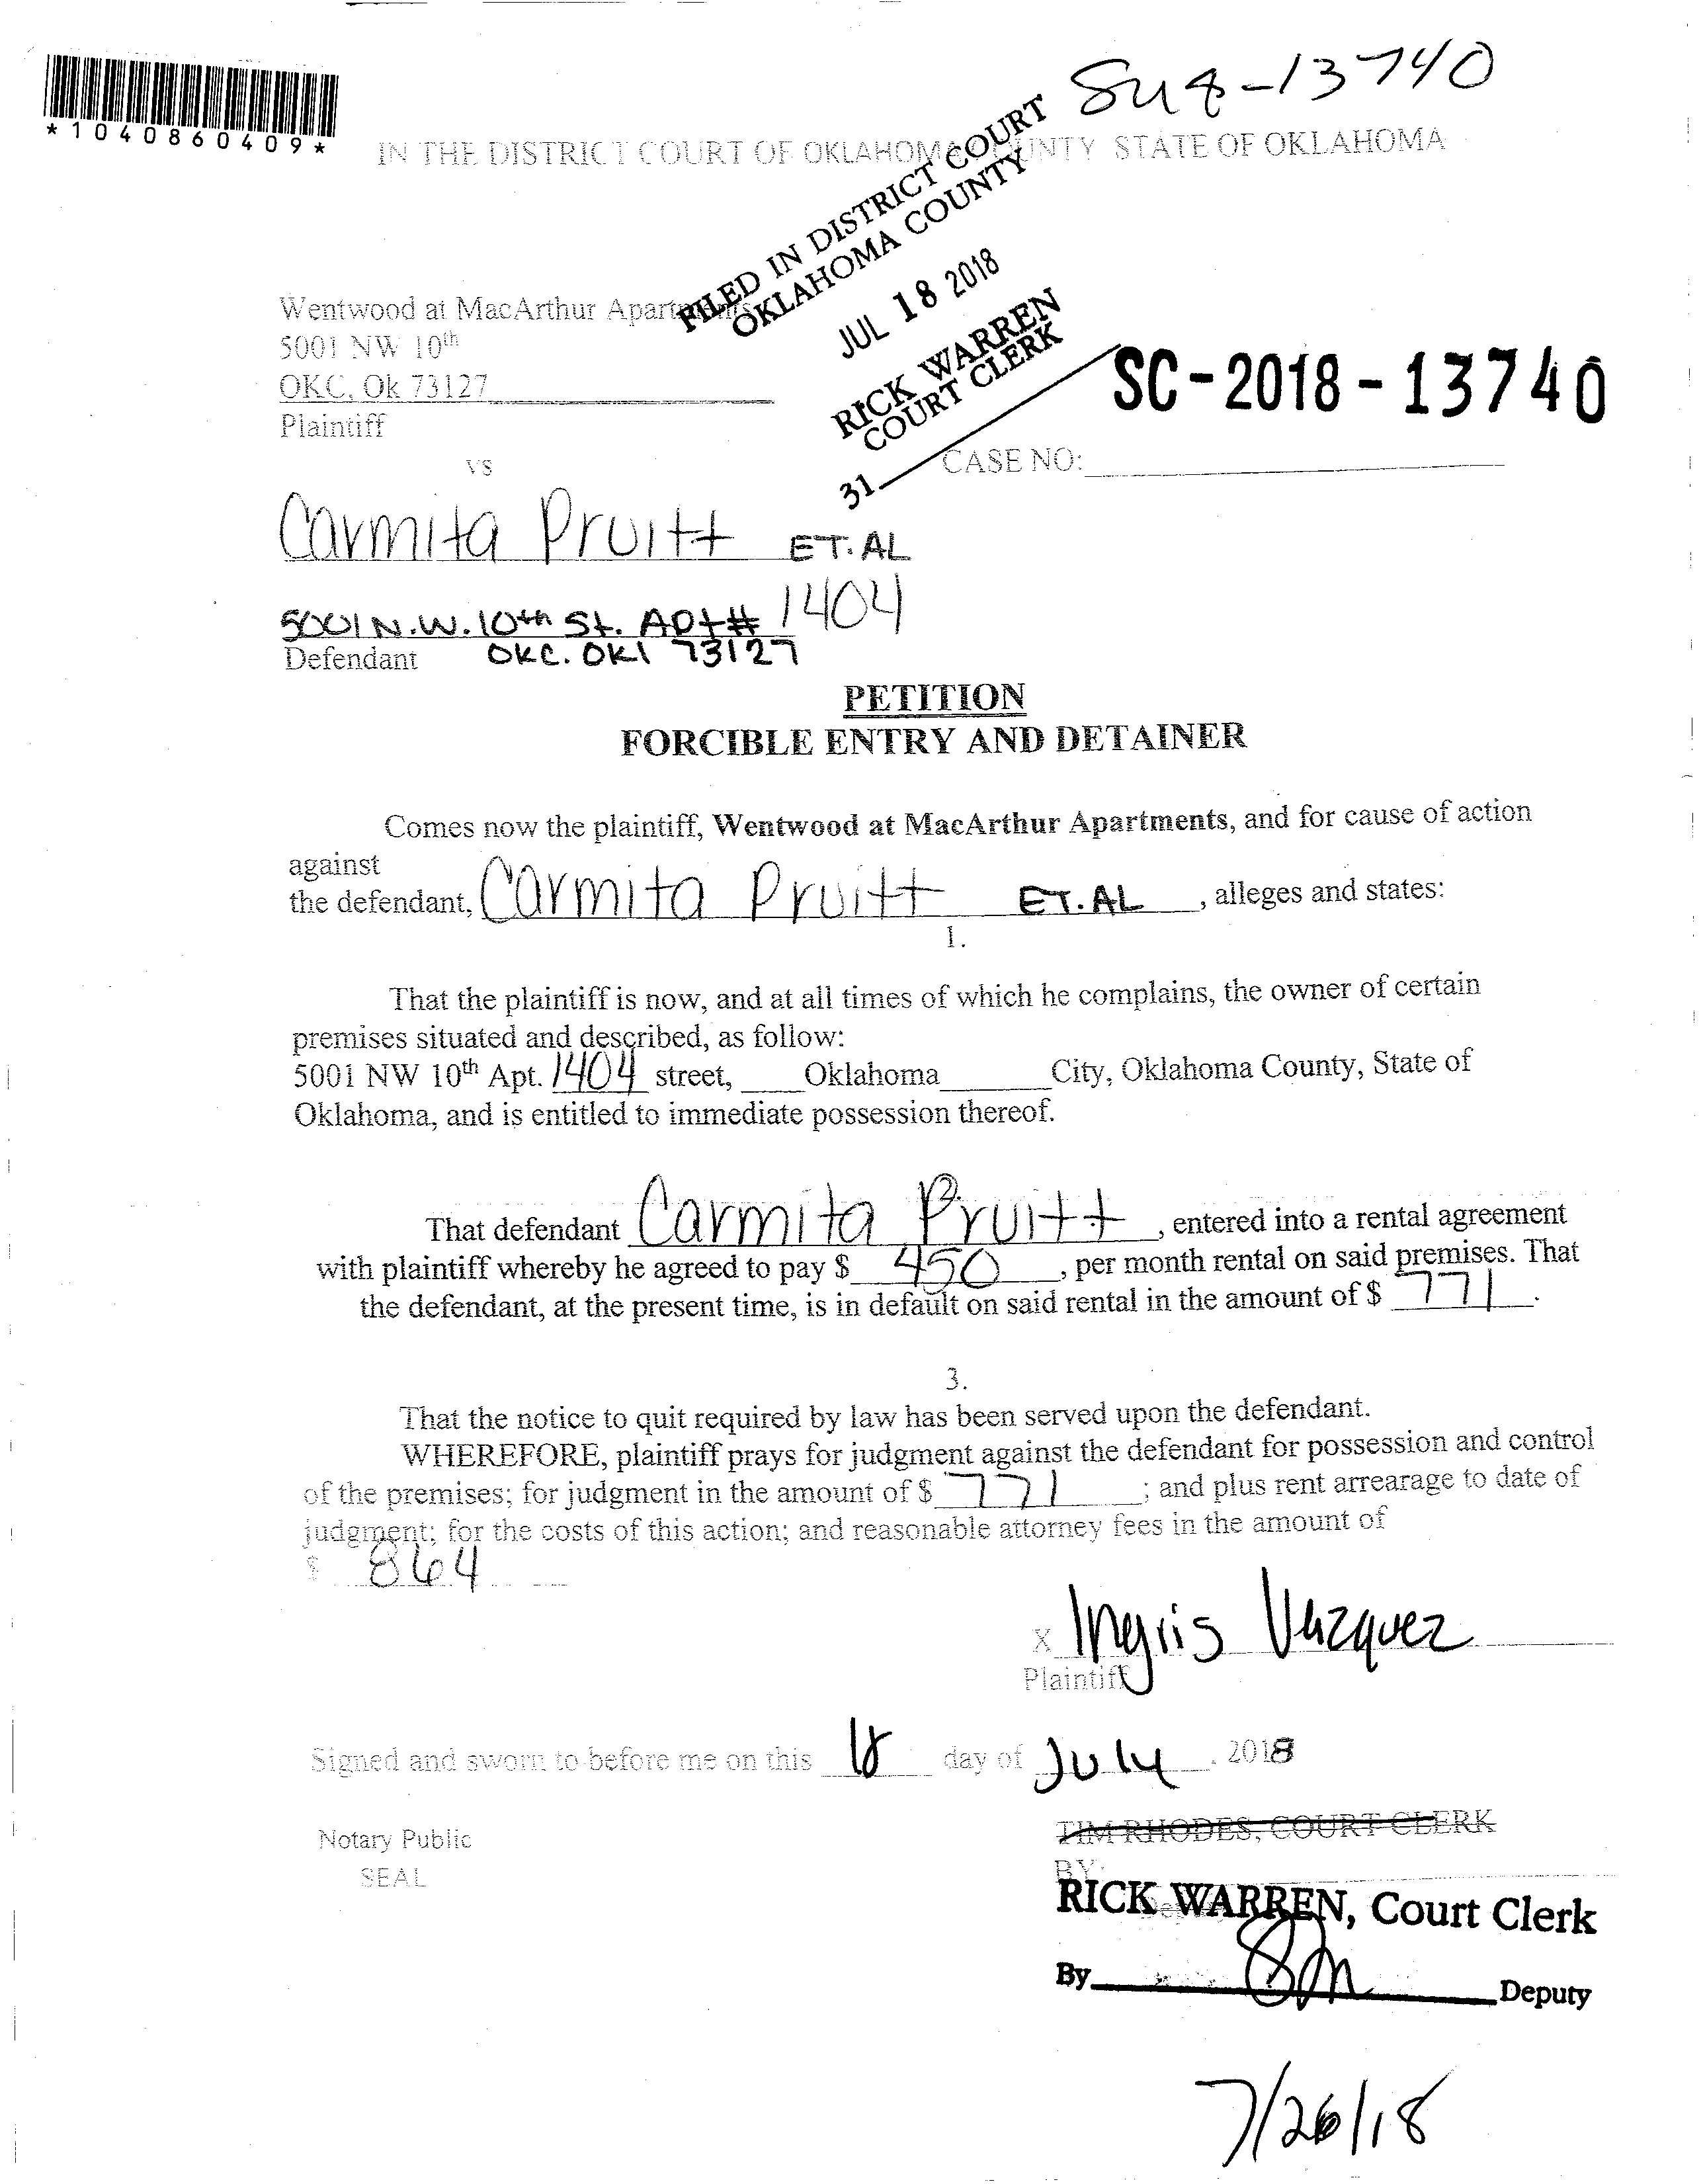 *1040860409*
IN THE DISTRICT COURT OF OKLAHOMA COUNTY STATE OF OKLAHOMA
FILED IN DISTRICT COURT
OKLAHOMA COUNTY
JUL 18 2018
RICK WARREN
COURT CLERK
31
Wentwood at MacArthur Apartments
5001 NW 10th
OKC, Ok 73127
Plaintiff
SC-2018-13740
vs
CASE NO:
Carmita Pruitt ET.AL
5001 N.W. 10th St. Apt# 1404
Defendant OKC. OKl 73127
PETITION
FORCIBLE ENTRY AND DETAINER
Comes now the plaintiff, Wentwood at MacArthur Apartments, and for cause of action
against
the defendant, Carmita Pruitt ET.AL , alleges and states:
1.
That the plaintiff is now, and at all times of which he complains, the owner of certain
premises situated and described, as follow:
5001 NW 10th Apt. 1404 street, Oklahoma City, Oklahoma County, State of
Oklahoma, and is entitled to immediate possession thereof.
That defendant Carmita Pruitt , entered into a rental agreement
with plaintiff whereby he agreed to pay $ 450 , per month rental on said premises. That
the defendant, at the present time, is in default on said rental in the amount of $ 771 .
3.
That the notice to quit required by law has been served upon the defendant.
WHEREFORE, plaintiff prays for judgment against the defendant for possession and control
of the premises; for judgment in the amount of $ 771 ; and plus rent arrearage to date of
judgment; for the costs of this action; and reasonable attorney fees in the amount of
$ 864
x Ingris Vazquez
Plaintiff
Signed and sworn to before me on this 18 day of July , 2018
Notary Public
SEAL
TIM RHODES, COURT CLERK
BY:
RICK WARREN, Court Clerk
By Deputy
7/26/18